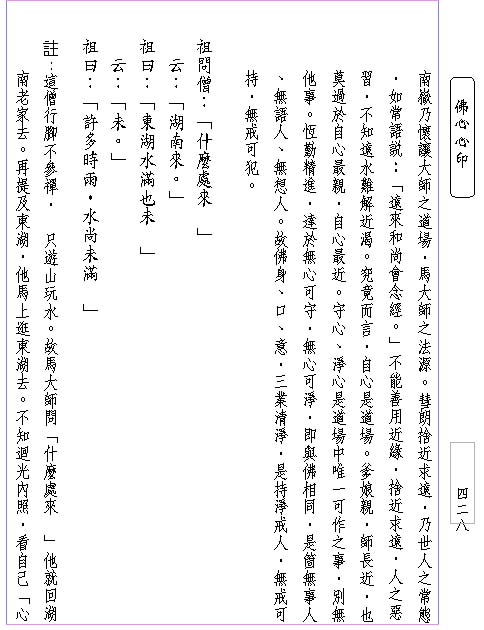 佛心心印
南嶽乃懷讓大師之道場，馬大師之法源。彗朗捨近求遠，乃世人之常態
，如常語說：「遠來和尚會念經。」不能善用近緣，捨近求遠，人之惡
習，不知遠水難解近渴。究竟而言，自心是道場。爹娘親，師長近，也
莫過於自心最親，自心最近。守心、淨心是道場中唯一可作之事，別無
他事。恆勤精進，達於無心可守，無心可淨，即與佛相同，是箇無事人
、無語人、無想人。故佛身、口、意，三業清淨，是持淨戒人，無戒可
持，無戒可犯。
祖問僧：「什麼處來　」
云：「湖南來。」
祖曰：「東湖水滿也未　」
云：「未。」
祖曰：「許多時雨，水尚未滿　」
註：這僧行腳不參禪，　只遊山玩水。故馬大師問「什麼處來　」他就回湖
南老家去。再提及東湖，他馬上逛東湖去。不知迴光內照，看自己「心
四二八